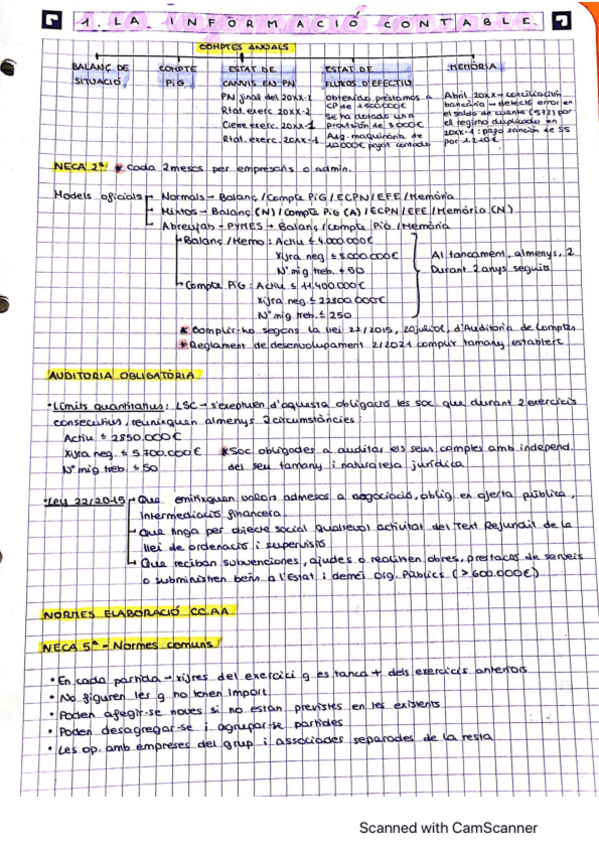 1. LA INFORMACIÓ CONTABLE.
COMPTES ANUALS
BALANÇ DE SITUACIÓ
COMPTE PiG
ESTAT DE CANVIS EN PN
PN final del 20XX-2
Rtat. exerc. 20XX-2
Cierre exerc. 20XX-1
Rtat. exerc. 20XX-1
ESTAT DE FLUXOS D'EFECTIU
Obtenido préstamos a
CP de 1500000€
Se ha dotado una
provisión de 3000€
Adq. maquinaria de
10000€ pagat contado
MEMÒRIA
Abril 20XX → conciliación
bancaria → detectó error en
el saldo de cuenta (572) por
el registro duplicado en
20XX-1: pago sanción de SS
por 1.210€
NECA 2ª * Cada 2 mesos per empresaris o admin.
Models oficials → Normals → Balanç / Compte PiG / ECPN / EFE / Memòria
→ Mixtos → Balanç (N) / Compte PiG (A) / ECPN / EFE / Memòria (N)
→ Abreujats - PYMES → Balanç / Compte PiG / Memòria
→ Balanç / Memo: Actiu ≤ 4.000.000€
Xifra neg ≤ 8.000.000€
Nº mig treb. ≤ 50
→ Compte PiG: Actiu ≤ 11.400.000€
Xifra neg. ≤ 22800.000€
Nº mig treb. ≤ 250
Al tancament, almenys, 2
Durant 2 anys seguits
* Complir-ho segons la llei 22/2015, 20 juliol, d'Auditoria de Comptes
* Reglament de desenvolupament 2/2021 complir tamany establert
AUDITORIA OBLIGATÒRIA
• Límits quantitatius: LSC → s'exeptuen d'aquesta obligació les soc. que durant 2 exercicis
consecutius, reuneixquen almenys 2 circumstàncies:
Actiu ≤ 2850.000€
Xifra neg. ≤ 5700.000€
Nº mig treb. ≤ 50
* Soc obligades a auditar els seus comptes amb independ.
del seu tamany i naturalesa jurídica
• Ley 22/2015 → Que emitixquen valors admesos a negociació, oblig en oferta pública,
intermediació financera.
→ Que tinga per objecte social qualsevol activitat del Text Refundit de la
llei de ordenació i supervisió
→ Que reciban subvenciones, ajudes o realitzen obres, prestacos de serveis
o subministren bens a l'Estat i demés org. Públics (>600.000€)
NORMES ELABORACIÓ CC.AA
NECA 5ª - Normes comuns
• En cada partida → xifres del exercici q es tanca + dels exercicis anteriors
• No figuren les q no tenen import
• Poden afegir-se noves si no estan previstes en les existents
• Poden desagregar-se i agrupar-se partides
• Les op. amb empreses del grup i associades separades de la resta
Scanned with CamScanner